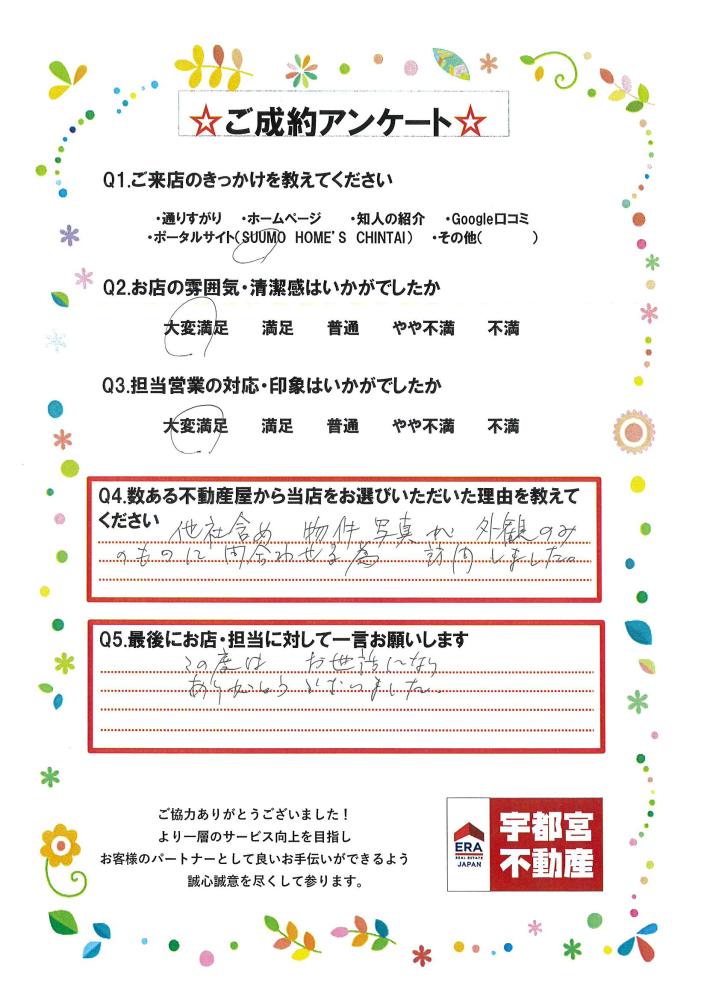 ☆ご成約アンケート☆
Q1.ご来店のきっかけを教えてください
・通りすがり ・ホームページ ・知人の紹介 ・Google口コミ
・ポータルサイト(SUUMO HOME'S CHINTAI) ・その他( )
Q2.お店の雰囲気・清潔感はいかがでしたか
大変満足 満足 普通 やや不満 不満
Q3.担当営業の対応・印象はいかがでしたか
大変満足 満足 普通 やや不満 不満
Q4.数ある不動産屋から当店をお選びいただいた理由を教えて
ください
他社含め 物件写真が 外観のみ
のものに問合わせる為 訪問しました。
Q5.最後にお店・担当に対して一言お願いします
この度は お世話になり
ありがとうございました。
ご協力ありがとうございました！
より一層のサービス向上を目指し
お客様のパートナーとして良いお手伝いができるよう
誠心誠意を尽くして参ります。
ERA
REAL ESTATE
JAPAN
宇都宮
不動産